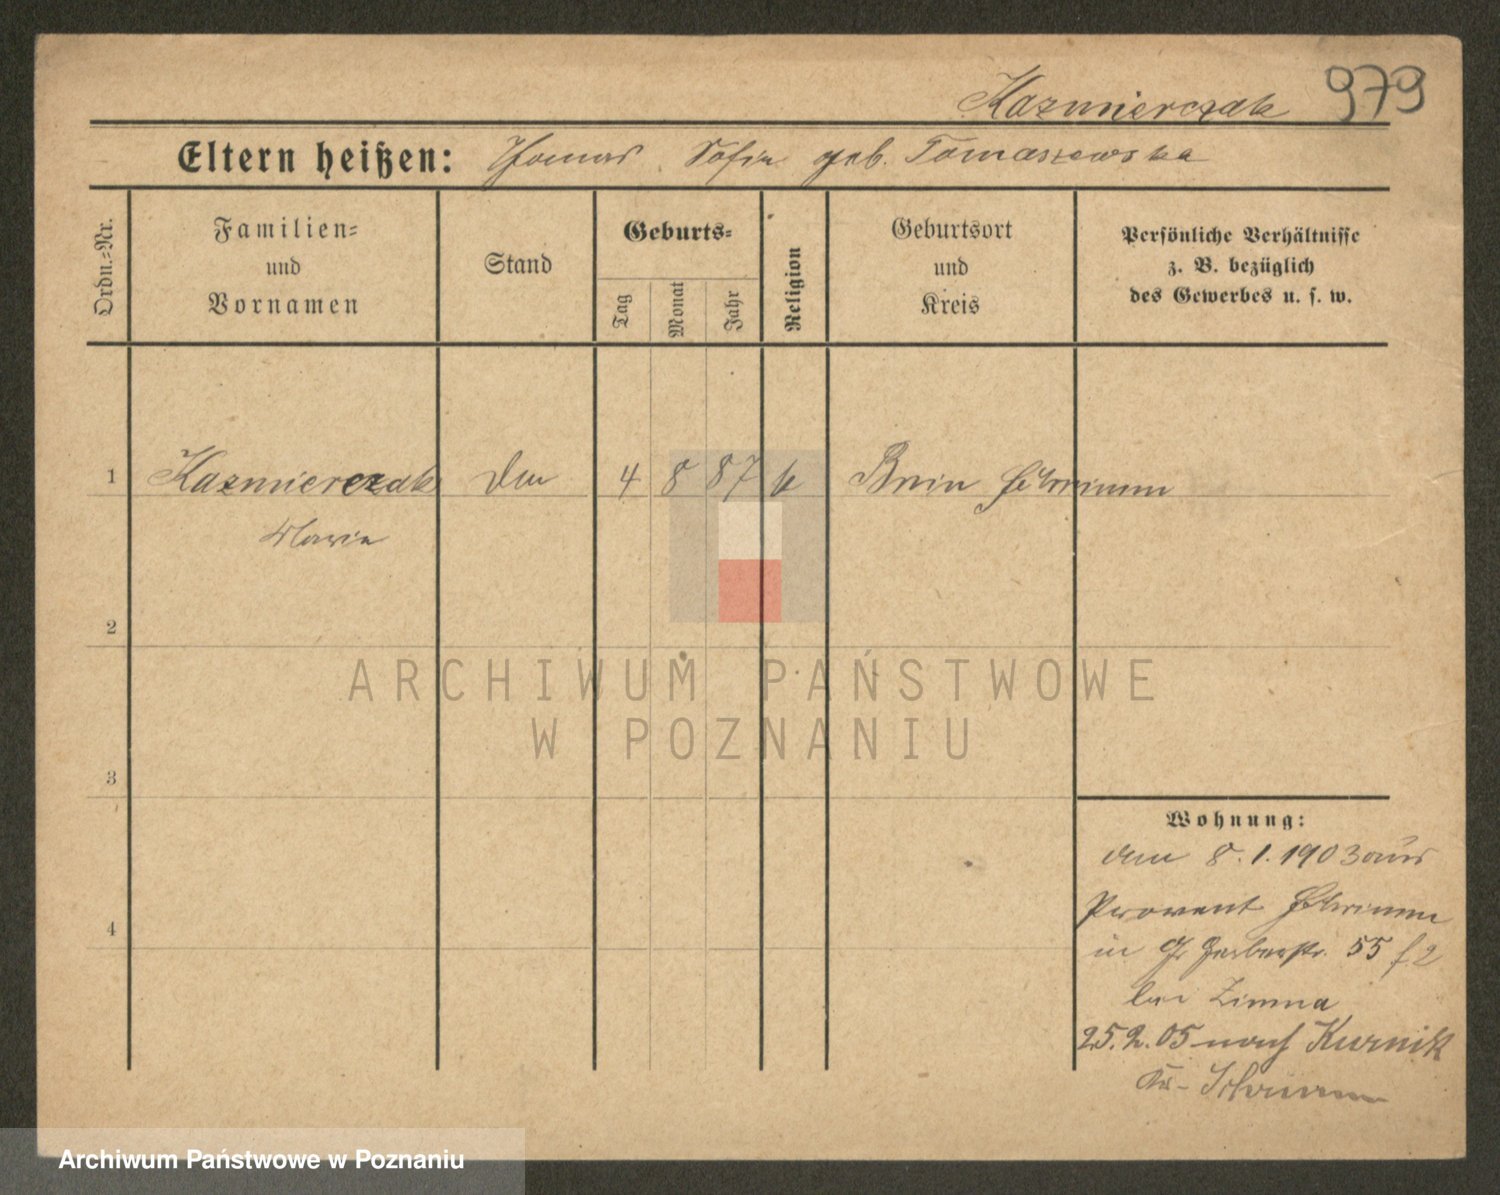 Kazmierczak 979
Eltern heißen: Thomas Sofia geb. Tomaszewska
Ordn.-Nr.
Familien-
und
Vornamen
Stand
Geburts-
Tag
Monat
Jahr
Religion
Geburtsort
und
Kreis
Persönliche Verhältnisse
z. B. bezüglich
des Gewerbes u. s. w.
1 Kazmierczak 4 8 87 k Bnin Schrimm
Marie
2
3
4
Wohnung:
den 8.1.1903 aus
Prowent Schrimm
in Gr Gerberstr. 55
bei Zimna
25.2.05 nach Kurnik
Kr. Schrimm
ARCHIWUM PAŃSTWOWE
W POZNANIU
Archiwum Państwowe w Poznaniu